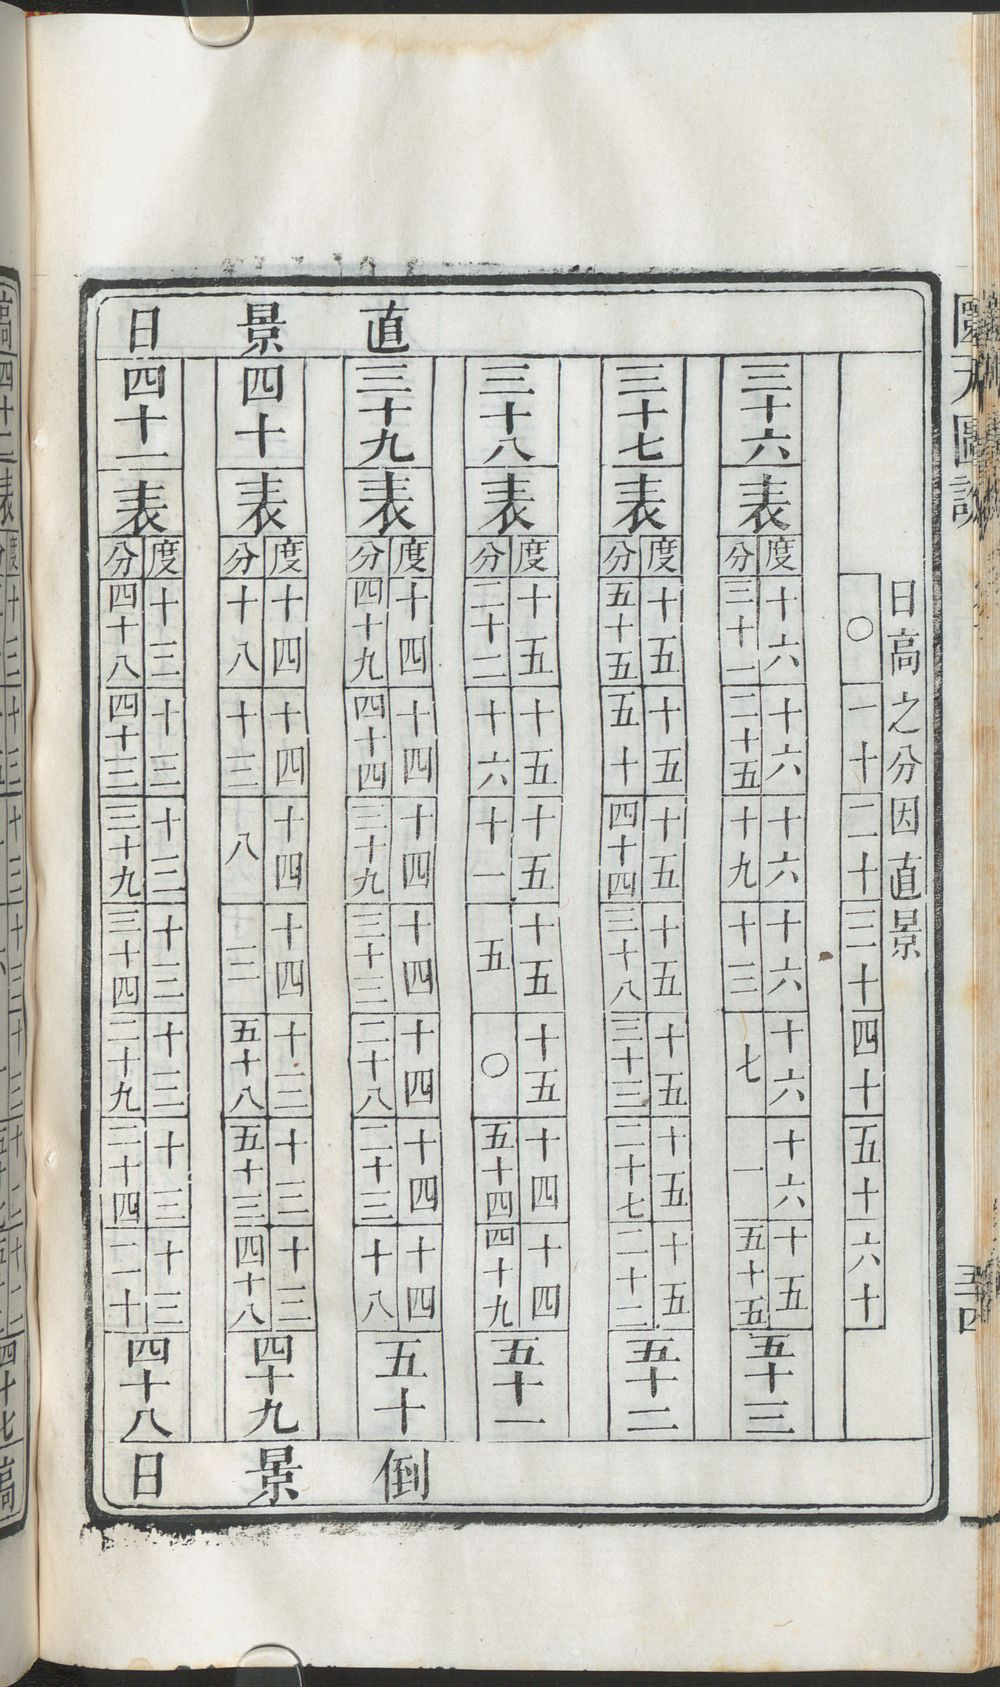 圜天圖說
日高之分因直景
〇 一十 二十 三十 四十 五十 六十
直景日
三十六 表
度 十六 十六 十六 十六 十六 十六 十五
分 三十一 二十五 十九 十三 七 一 五十五
五十三
三十七 表
度 十五 十五 十五 十五 十五 十五 十五
分 五十五 五十 四十四 三十八 三十三 二十七 二十二
五十二
三十八 表
度 十五 十五 十五 十五 十五 十四 十四
分 二十二 十六 十一 五 〇 五十四 四十九
五十一
三十九 表
度 十四 十四 十四 十四 十四 十四 十四
分 四十九 四十四 三十九 三十三 二十八 二十三 十八
五十
四十 表
度 十四 十四 十四 十四 十三 十三 十三
分 十八 十三 八 三 五十八 五十三 四十八
四十九
四十一 表
度 十三 十三 十三 十三 十三 十三 十三
分 四十八 四十三 三十九 三十四 二十九 二十四 二十
四十八
倒景日